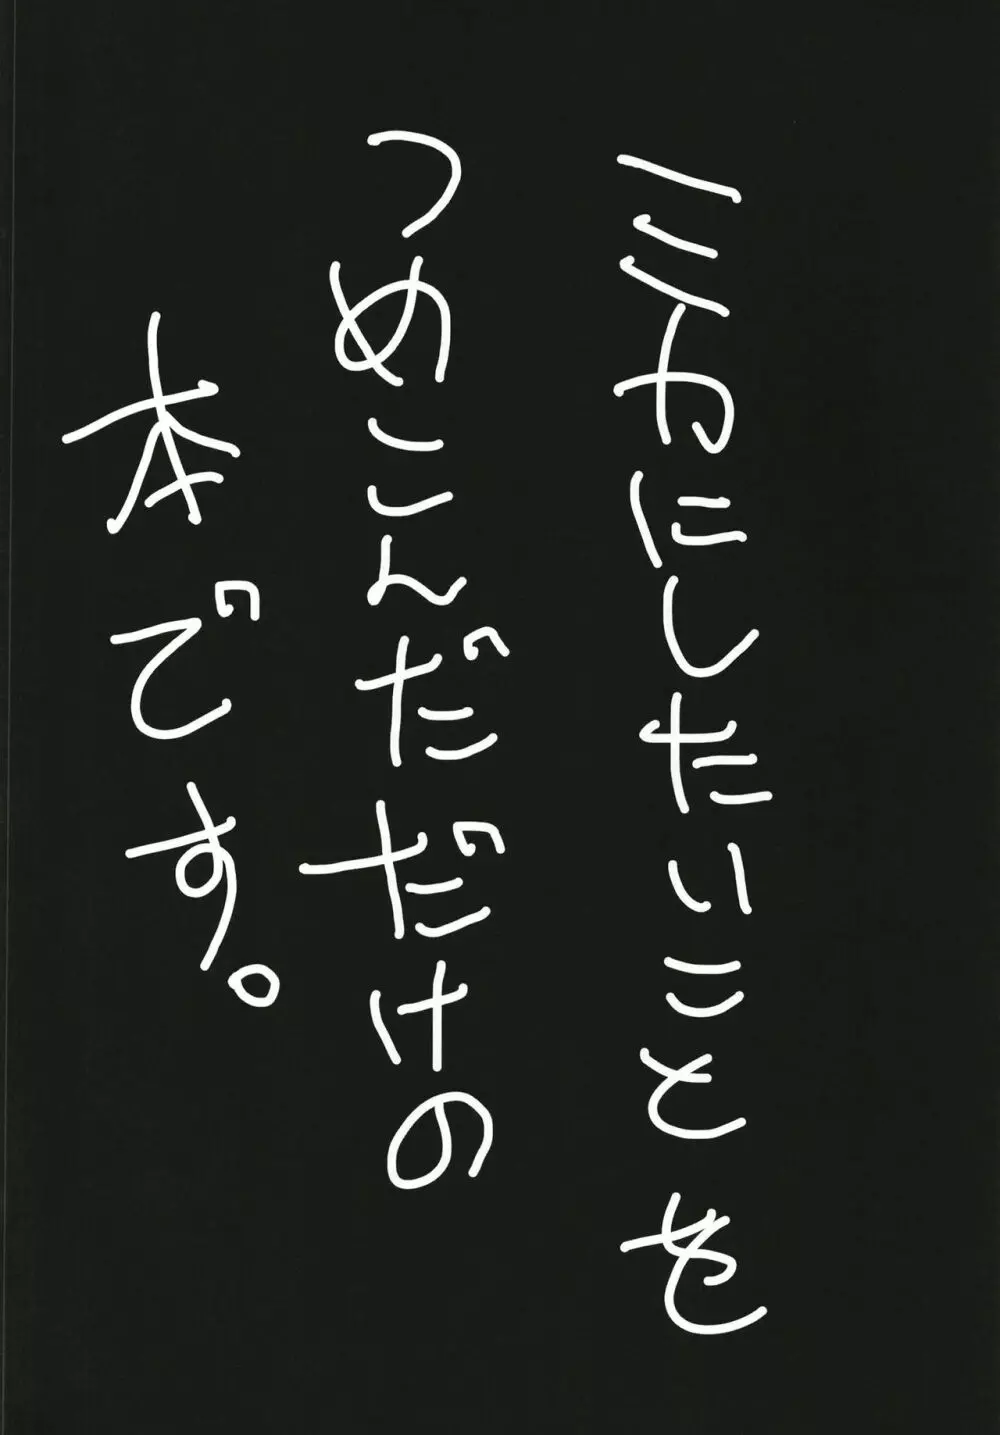 ミヤにしたいことを
つめこんだだけの
本です。